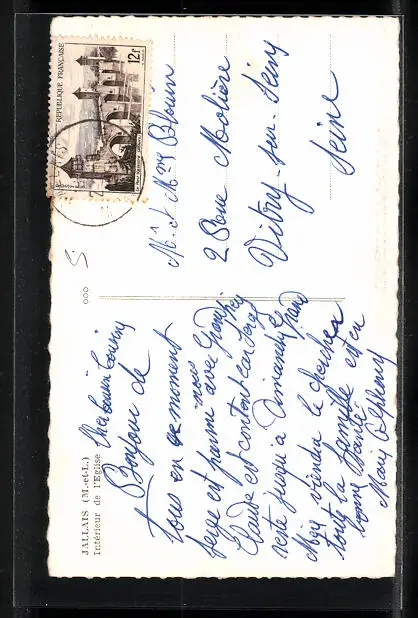 JALLAIS (M.-et-L.)
Intérieur de l'Eglise
Cher Cousin Cousine
Bonjour de
tous en ce moment
nous
est parmi avec Grand
Claude est content en
reste jusqu'a Dimanche
viendra le chercher
toute la famille est en
bonne santé
Marie
REPUBLIQUE FRANÇAISE
12F
Mr et Mme Blouin
2 Rue Molière
Vitry-sur-Seine
Seine